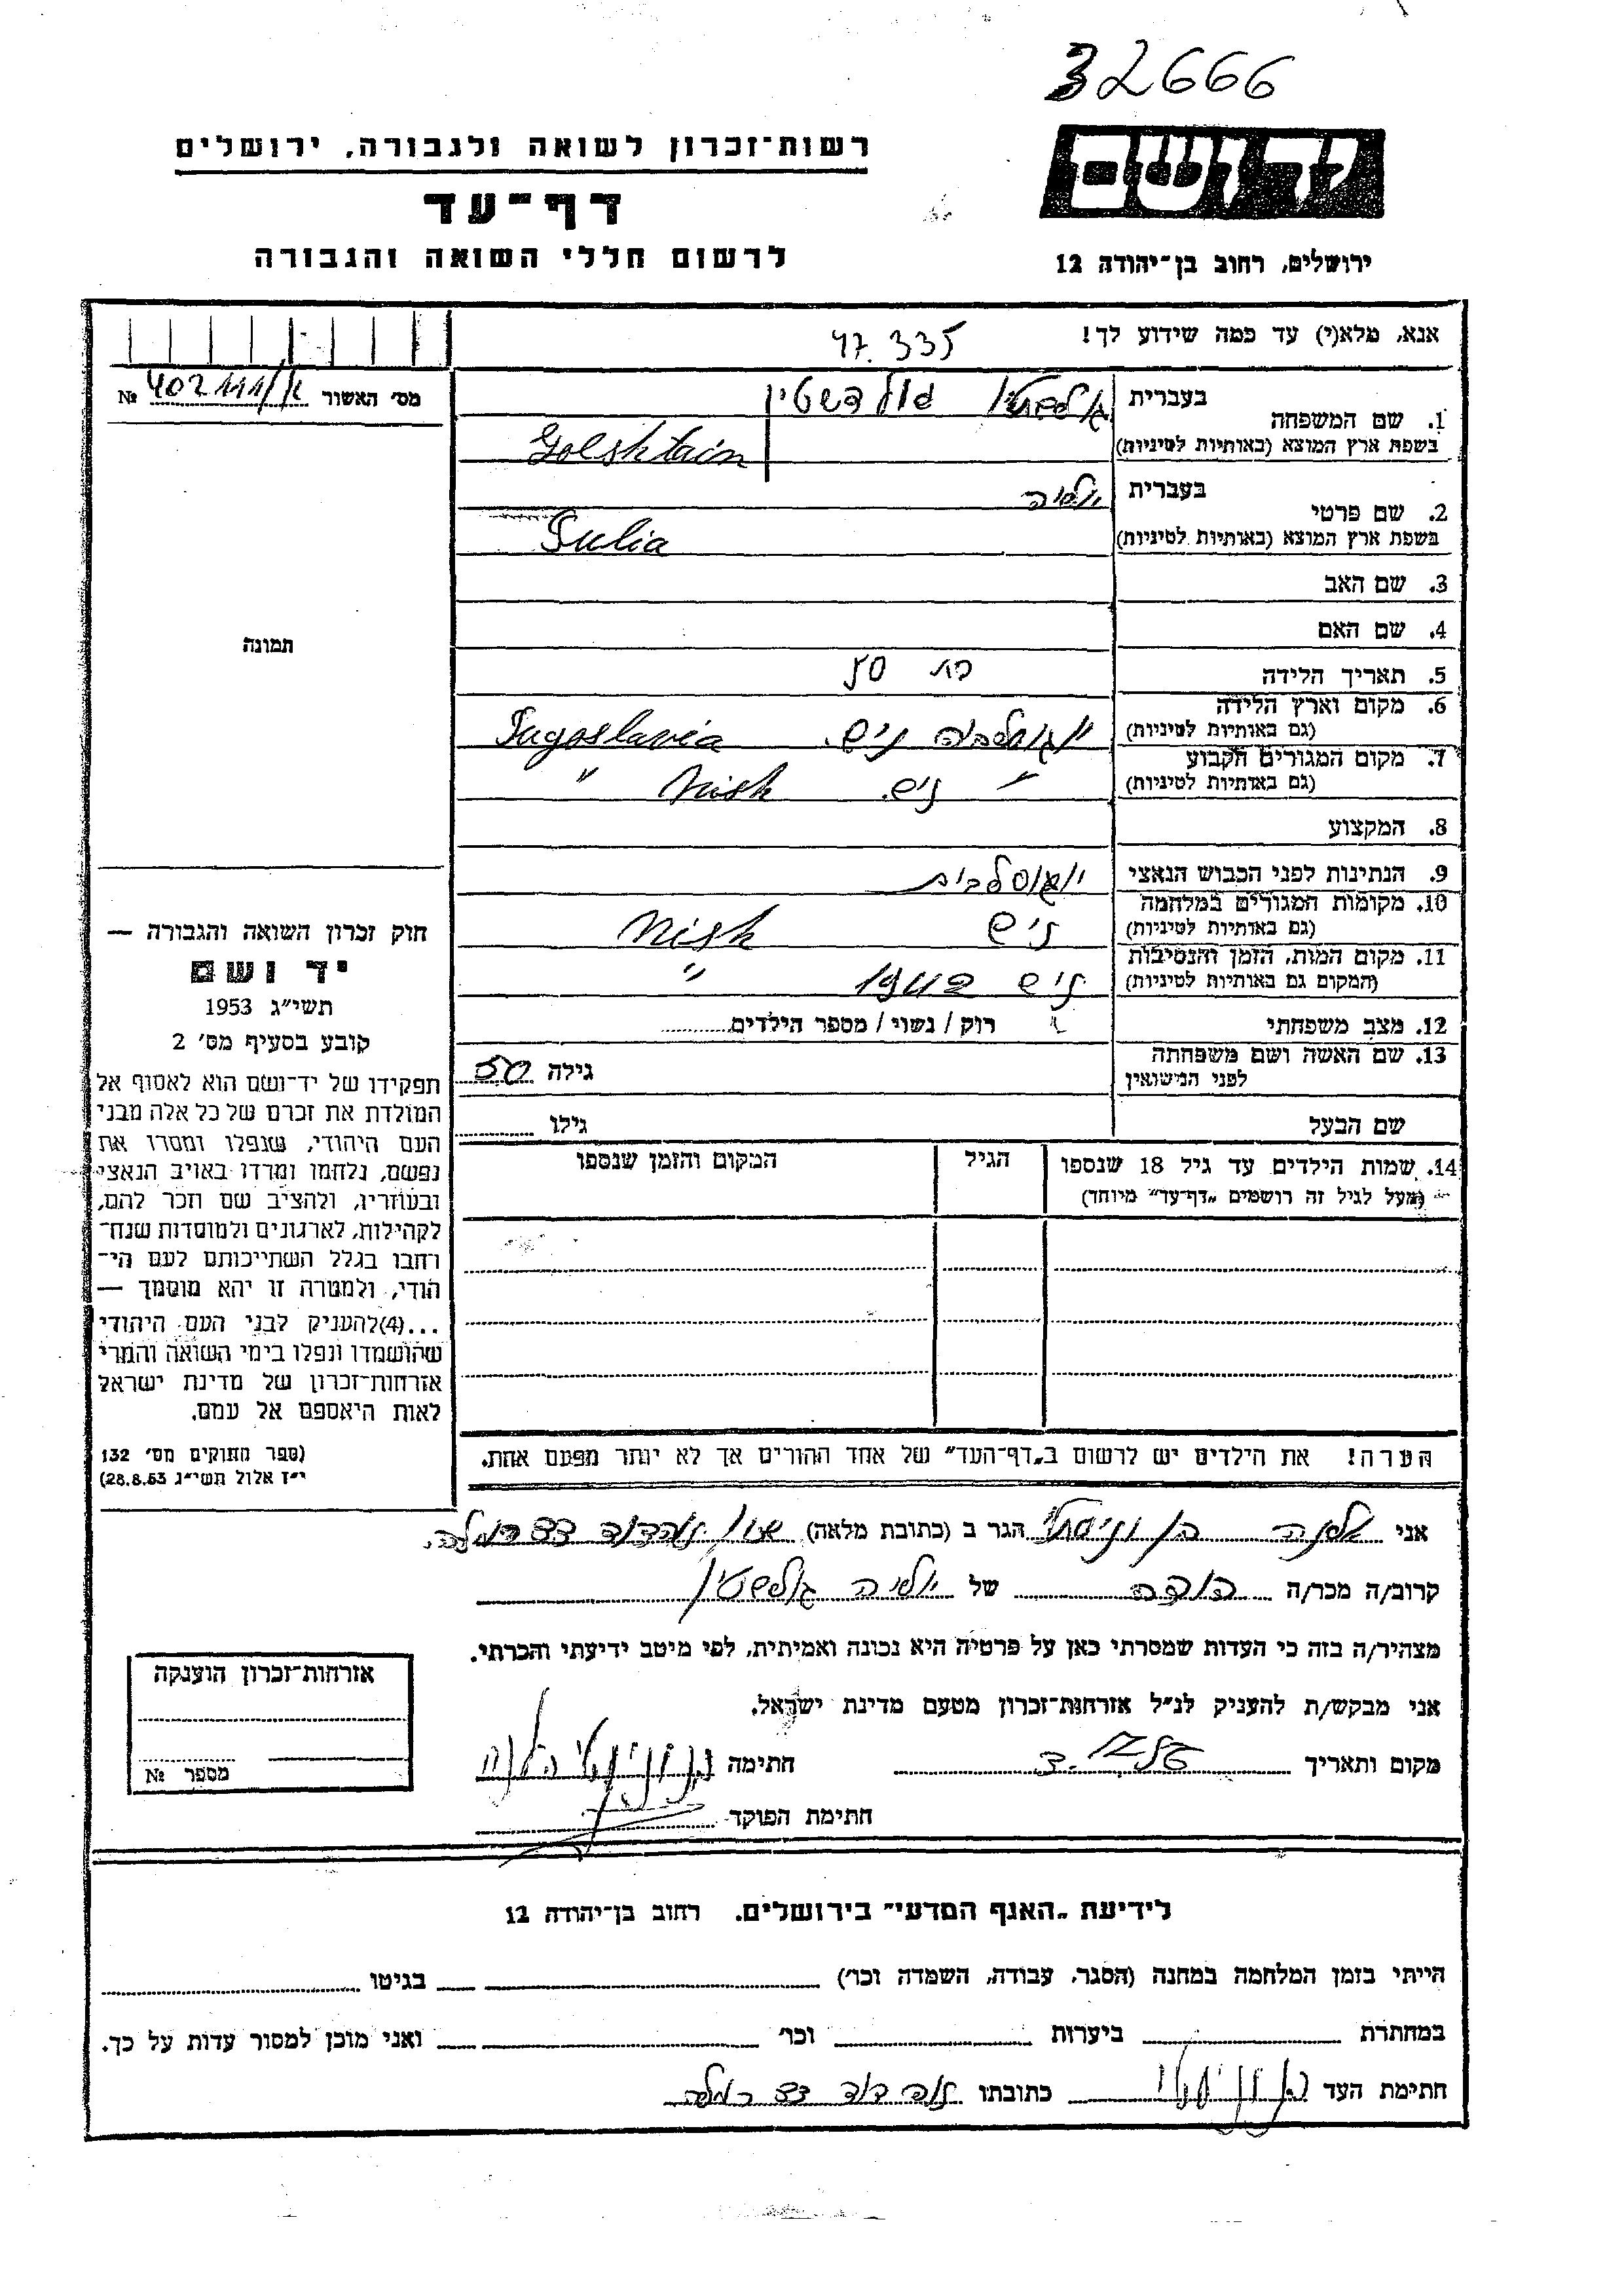 32666
רשות־זכרון לשואה ולגבורה, ירושלים
דף־עד
לרשום חללי השואה והגבורה
יד ושם
ירושלים, רחוב בן־יהודה 12
אנא, מלא(י) עד כמה שידוע לך!
47.335
מס׳ האשור № 402111/
1. שם המשפחה בעברית גולשטיין גולדשטיין
בשפת ארץ המוצא (באותיות לטיניות) Golshtain
2. שם פרטי בעברית יוליה
בשפת ארץ המוצא (באותיות לטיניות) Julia
3. שם האב
4. שם האם
5. תאריך הלידה בת 50
6. מקום וארץ הלידה יוגוסלביה ניש. Jugoslavia
(גם באותיות לטיניות)
7. מקום המגורים הקבוע ״ ניש. Nish ״
(גם באותיות לטיניות)
8. המקצוע
9. הנתינות לפני הכבוש הנאצי יוגוסלבית
10. מקומות המגורים במלחמה ניש Nish
(גם באותיות לטיניות)
11. מקום המות, הזמן והנסיבות ניש 1942 ״
(המקום גם באותיות לטיניות)
12. מצב משפחתי רוק / נשוי / מספר הילדים
13. שם האשה ושם משפחתה
לפני הנישואין
גילה 50
שם הבעל גילו
14. שמות הילדים עד גיל 18 שנספו הגיל המקום והזמן שנספו
(מעל לגיל זה רושמים „דף־עד״ מיוחד)
הערה! את הילדים יש לרשום ב„דף־העד״ של אחד ההורים אך לא יותר מפעם אחת.
תמונה
חוק זכרון השואה והגבורה —
יד ושם
תשי״ג 1953
קובע בסעיף מס׳ 2
תפקידו של יד־ושם הוא לאסוף אל
המולדת את זכרם של כל אלה מבני
העם היהודי, שנפלו ומסרו את
נפשם, נלחמו ומרדו באויב הנאצי
ובעוזריו, ולהציב שם וזכר להם,
לקהילות, לארגונים ולמוסדות שנח־
רחבו בגלל השתייכותם לעם הי־
הודי, ולמטרה זו יהא מוסמך —
...(4)להעניק לבני העם היהודי
שהושמדו ונפלו בימי השואה והמרי
אזרחות־זכרון של מדינת ישראל
לאות היאספם אל עמם.
(ספר החוקים מס׳ 132
י״ז אלול תשי״ג 28.8.53)
אני הגר ב (כתובת מלאה) רמלה.
קרוב/ה מכר/ה דודה של יוליה גולשטיין
מצהיר/ה בזה כי העדות שמסרתי כאן על פרטיה היא נכונה ואמיתית, לפי מיטב ידיעתי והכרתי.
אני מבקש/ת להעניק לנ״ל אזרחות־זכרון מטעם מדינת ישראל.
מקום ותאריך חתימה
חתימת הפוקד
אזרחות־זכרון הוענקה
מספר №
לידיעת „האגף המדעי״ בירושלים. רחוב בן־יהודה 12
הייתי בזמן המלחמה במחנה (הסגר, עבודה, השמדה וכר׳) בגיטו
במחתרת ביערות וכר׳ ואני מוכן למסור עדות על כך.
חתימת העד כתובתו רמלה